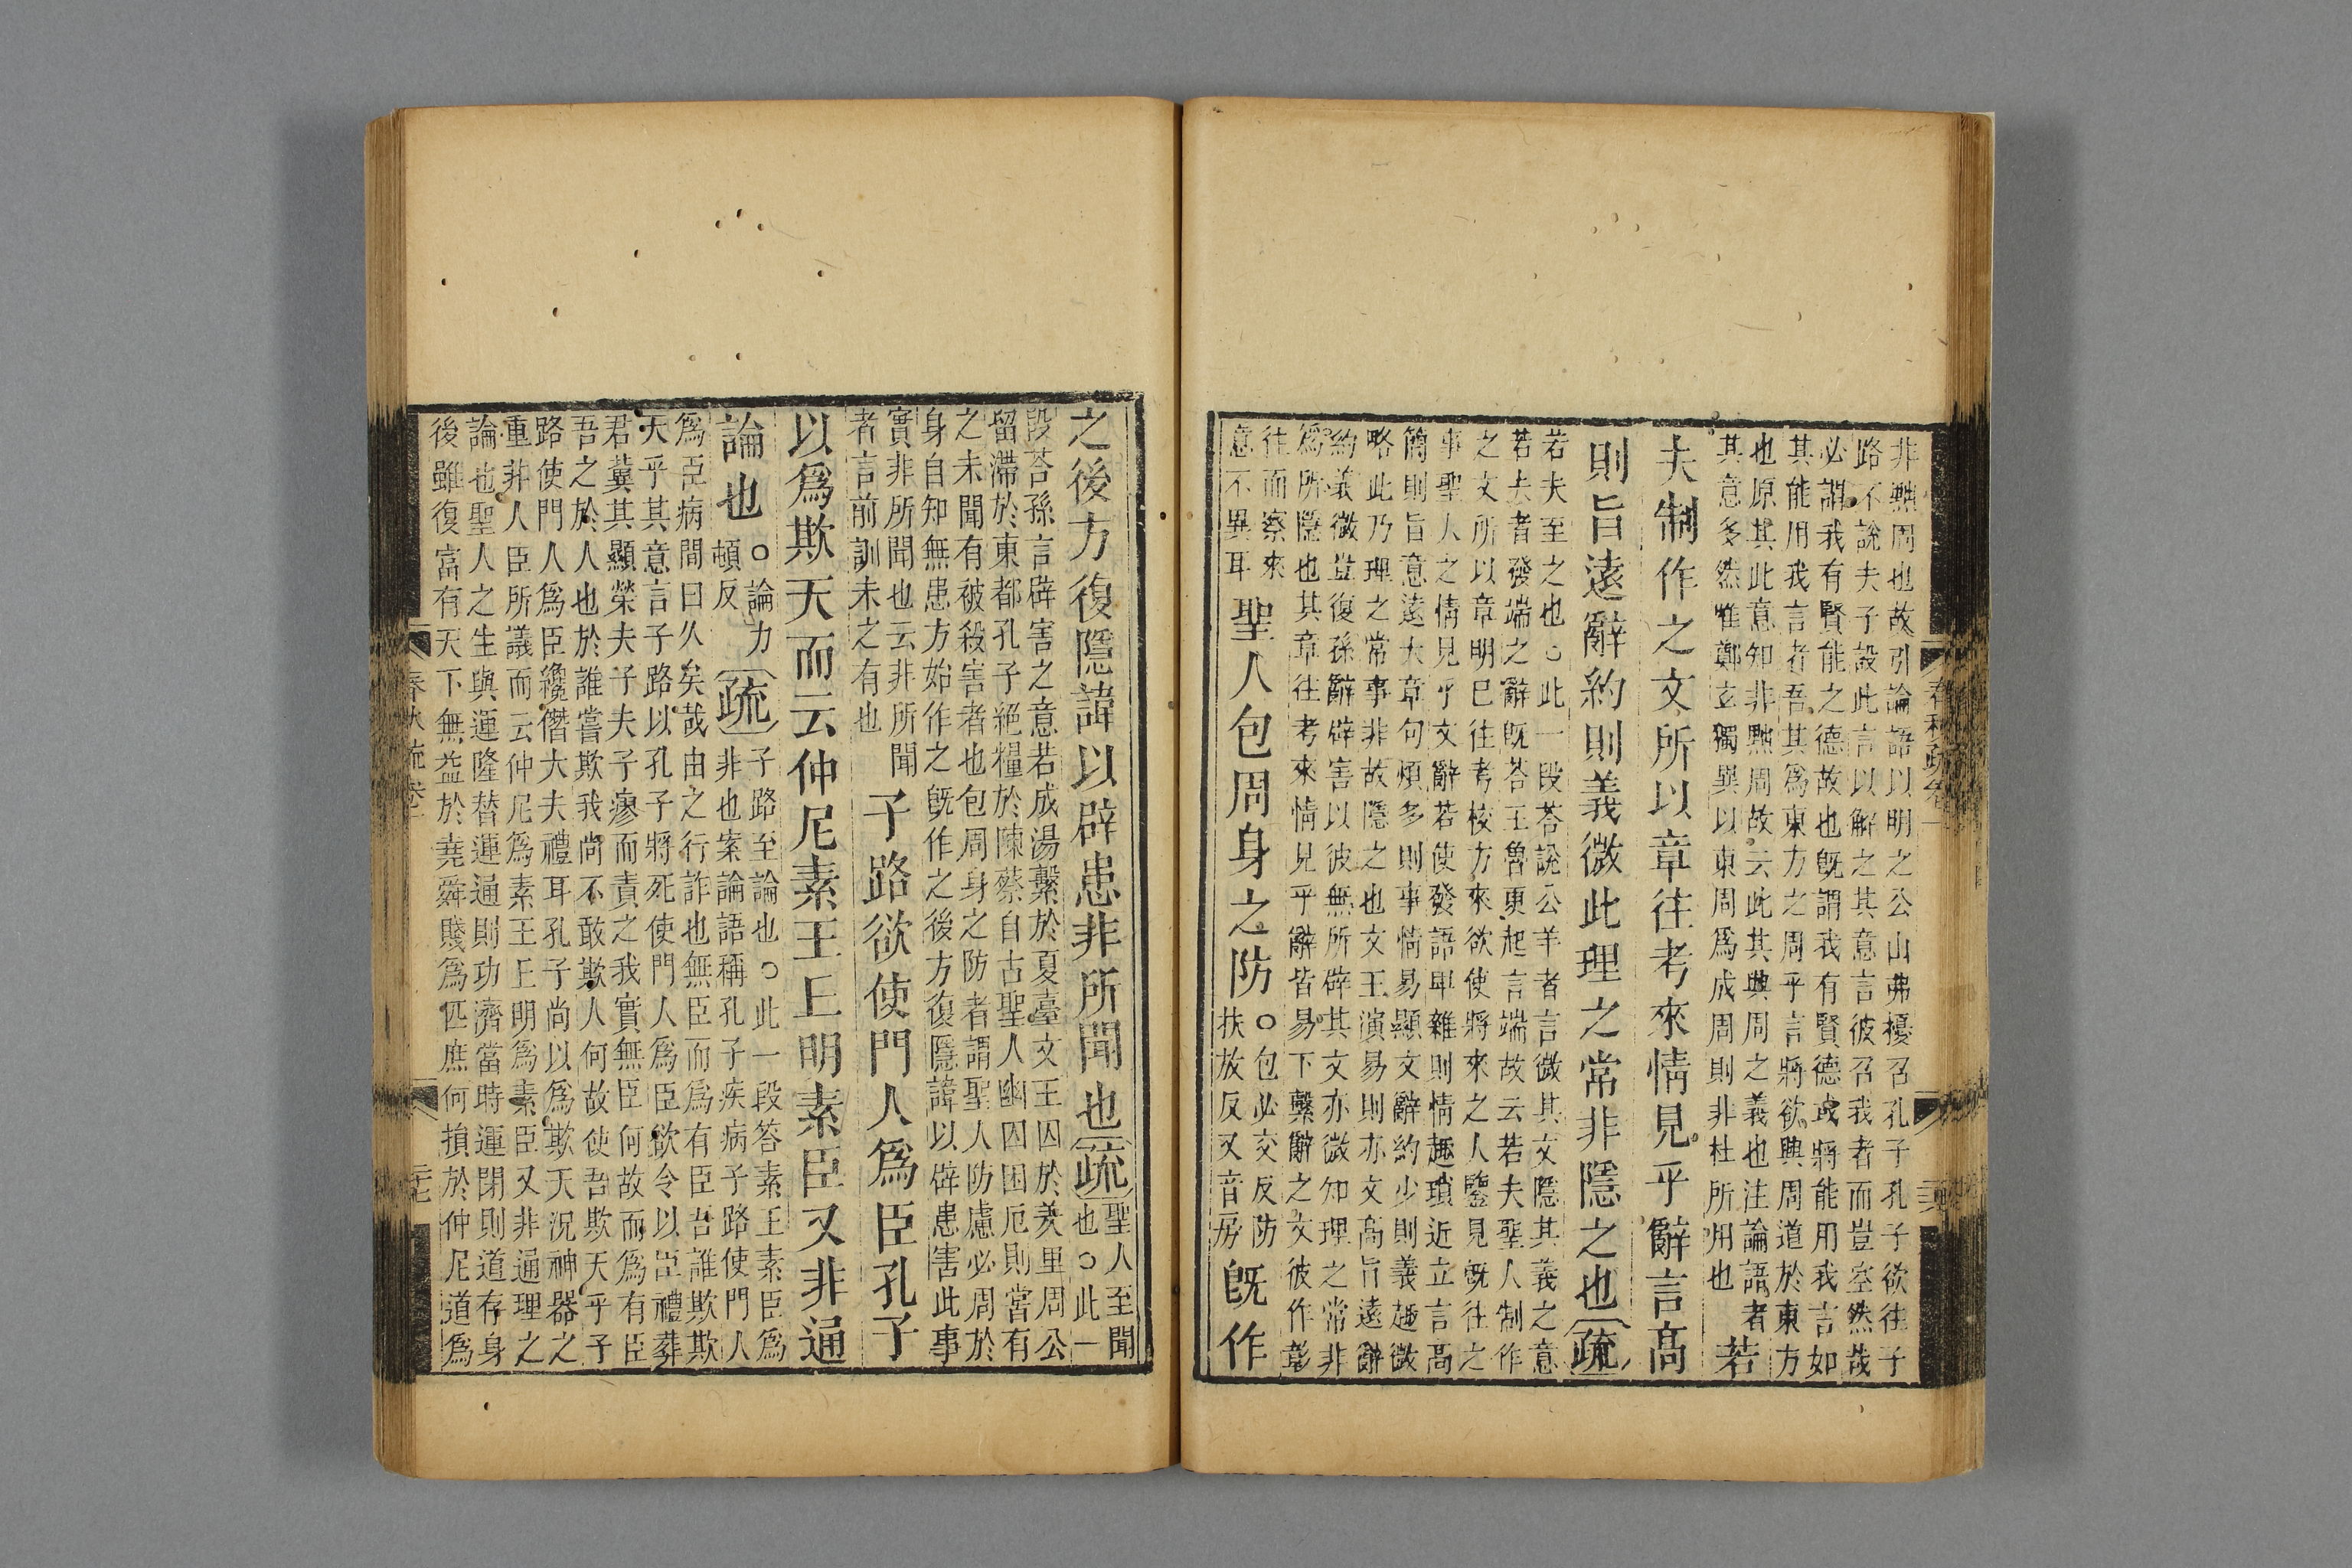 春秋疏卷一
非黜周也故引論語以明之公山弗擾召孔子孔子欲往子
路不說夫子設此言以解之其意言彼召我者而豈空然哉
必謂我有賢能之德故也旣謂我有賢德或將能用我言如
其能用我言者吾其爲東方之周乎言將欲興周道於東方
也原其此意知非黜周故云此其興周之義也注論語者
其意多然惟鄭玄獨異以東周爲成周則非杜所用也 若
夫制作之文所以章往考來情見乎辭言高
則旨遠辭約則義微此理之常非隱之也疏
若夫至之也○此一段荅說公羊者言微其文隱其義之意
若夫者發端之辭旣荅王魯更起言端故云若夫聖人制作
之文所以章明已往考校方來欲使將來之人鑒見旣往之
事聖人之情見乎文辭若使發語卑雜則情趣瑣近立言高
簡則旨意遠大章句煩多則事情易顯文辭約少則義趣微
略此乃理之常事非故隱之也文王演易則亦文高旨遠辭
約義微豈復孫辭辟害以彼無所辟其文亦微知理之常非
爲所隱也其章往考來情見乎辭皆易下繫辭之文彼作彰
往而察來
意不異耳 聖人包周身之防○包必交反防
扶放反又音房 旣作
之後方復隱諱以辟患非所聞也疏聖人至聞
也○此一
段荅孫言辟害之意若成湯繫於夏臺文王囚於羑里周公
留滯於東都孔子絕糧於陳蔡自古聖人幽囚困厄則嘗有
之未聞有被殺害者也包周身之防者謂聖人防慮必周於
身自知無患方始作之旣作之後方復隱諱以辟患害此事
實非所聞也云非所聞
者言前訓未之有也 子路欲使門人爲臣孔子
以爲欺天而云仲尼素王丘明素臣又非通
論也○論力
頓反 疏子路至論也○此一段答素王素臣爲
非也案論語稱孔子疾病子路使門人
爲臣病間曰久矣哉由之行詐也無臣而爲有臣吾誰欺欺
天乎其意言子路以孔子將死使門人爲臣欲令以臣禮葬
君冀其顯榮夫子夫子瘳而責之我實無臣何故而爲有臣
吾之於人也於誰嘗欺我尚不敢欺人何故使吾欺天乎子
路使門人爲臣纔僭大夫禮耳孔子尚以爲欺天況神器之
重非人臣所議而云仲尼爲素王丘明爲素臣又非通理之
論也聖人之生與運隆替運通則功濟當時運閉則道存身
後雖復富有天下無益於堯舜賤爲匹庶何損於仲尼道爲
春秋疏卷一